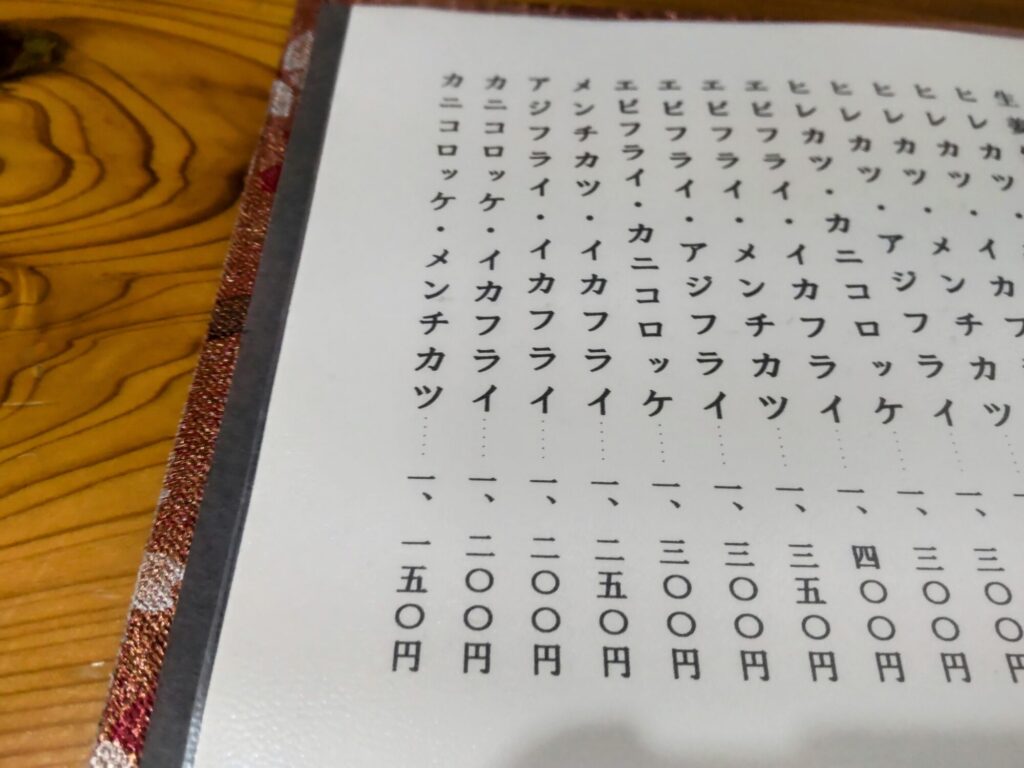 ヒレカツ・イカフ
ヒレカツ・メンチカツ
ヒレカツ・アジフライ……一、三〇〇円
ヒレカツ・カニコロッケ……一、三〇〇円
エビフライ・イカフライ……一、四〇〇円
エビフライ・メンチカツ……一、三五〇円
エビフライ・アジフライ……一、三〇〇円
エビフライ・カニコロッケ……一、三〇〇円
メンチカツ・イカフライ……一、二五〇円
アジフライ・イカフライ……一、二〇〇円
カニコロッケ・イカフライ……一、二〇〇円
カニコロッケ・メンチカツ……一、一五〇円